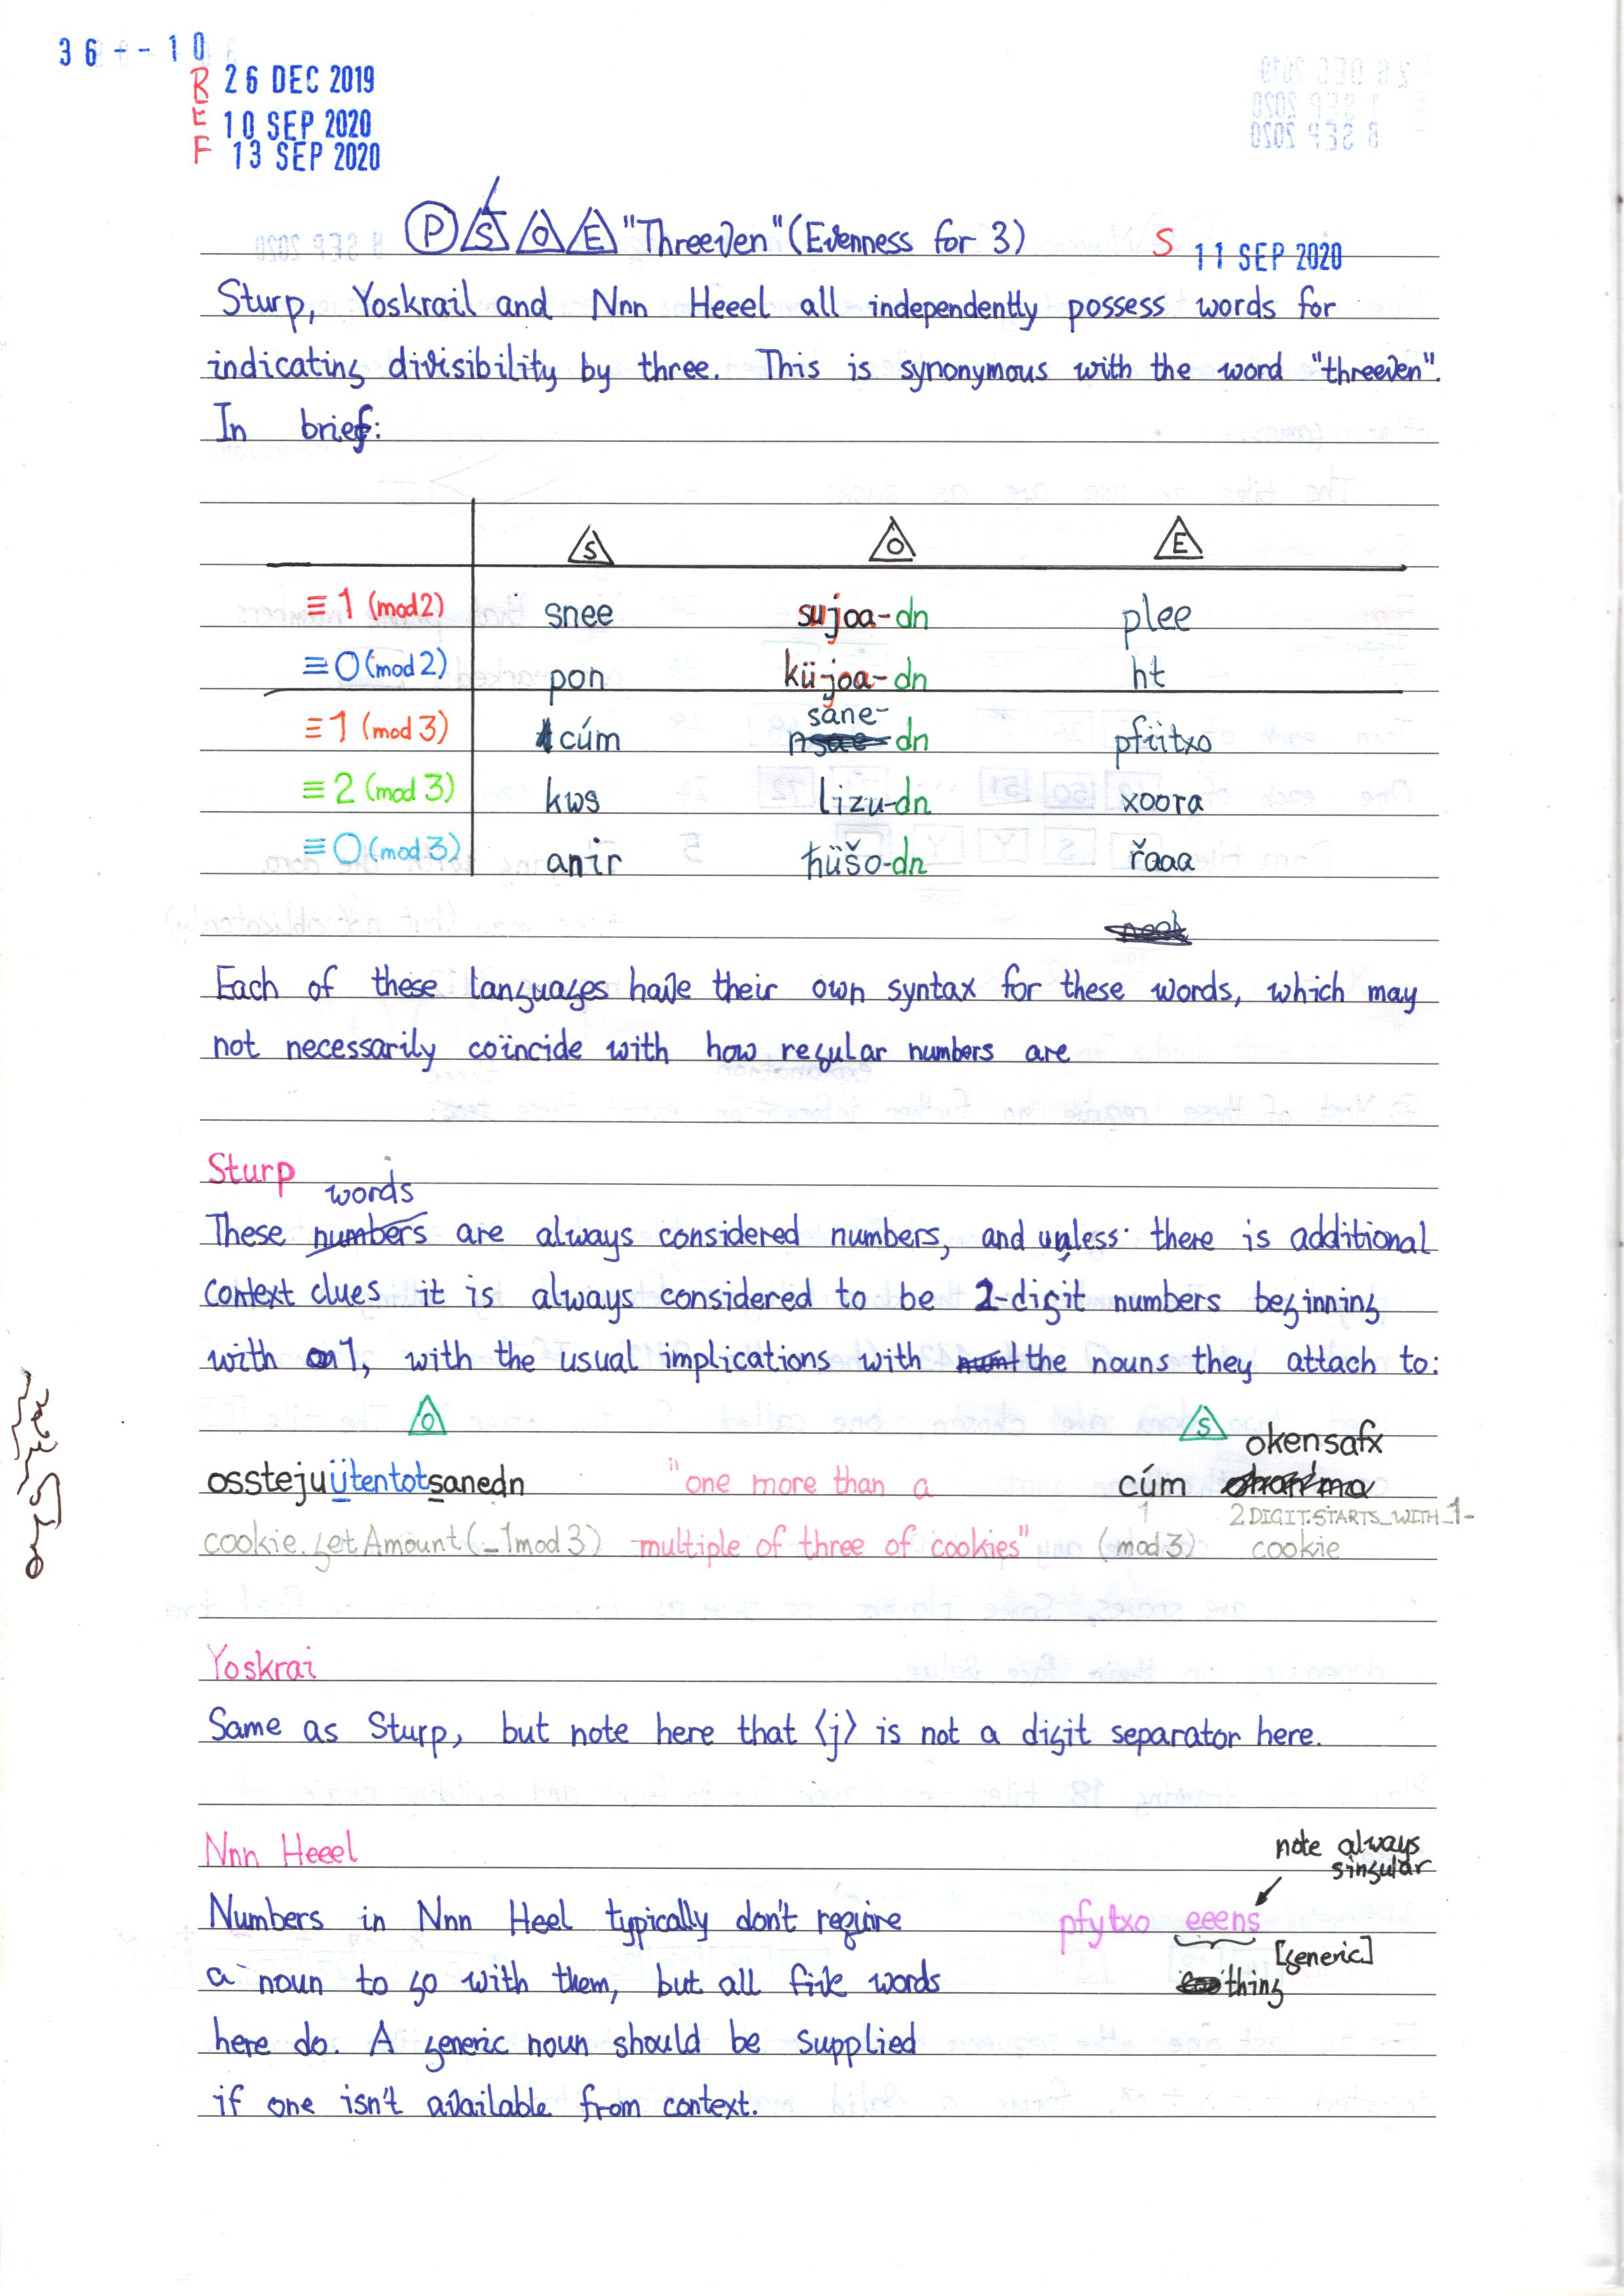 36--10
R 26 DEC 2019
E 10 SEP 2020
F 13 SEP 2020
P S O E "Threeven" (Evenness for 3) S 11 SEP 2020
Sturp, Yoskrail and Nnn Heeel all independently possess words for
indicating divisibility by three. This is synonymous with the word "threeven".
In brief:
S O E
≡1 (mod 2) snee sujoa-dn plee
≡0 (mod 2) pon küjoa-dn ht
≡1 (mod 3) cúm sane-dn pfüitxo
≡2 (mod 3) kws lizu-dn xoora
≡0 (mod 3) anir ħüšo-dn řaaa
Each of these languages have their own syntax for these words, which may
not necessarily coïncide with how regular numbers are
Sturp
These words are always considered numbers, and unless there is additional
context clues it is always considered to be 2-digit numbers beginning
with 1, with the usual implications with the nouns they attach to:
O S okensafx
osstejuütentotsanedn "one more than a cúm
cookie.getAmount(_1mod3) multiple of three of cookies" 1 (mod3) 2DIGIT.STARTS_WITH_1-cookie
Yoskrai
Same as Sturp, but note here that ⟨j⟩ is not a digit separator here.
Nnn Heeel
note always singular
Numbers in Nnn Heel typically don't require pfytxo eeens
a noun to go with them, but all five words [generic] thing
here do. A generic noun should be supplied
if one isn't available from context.